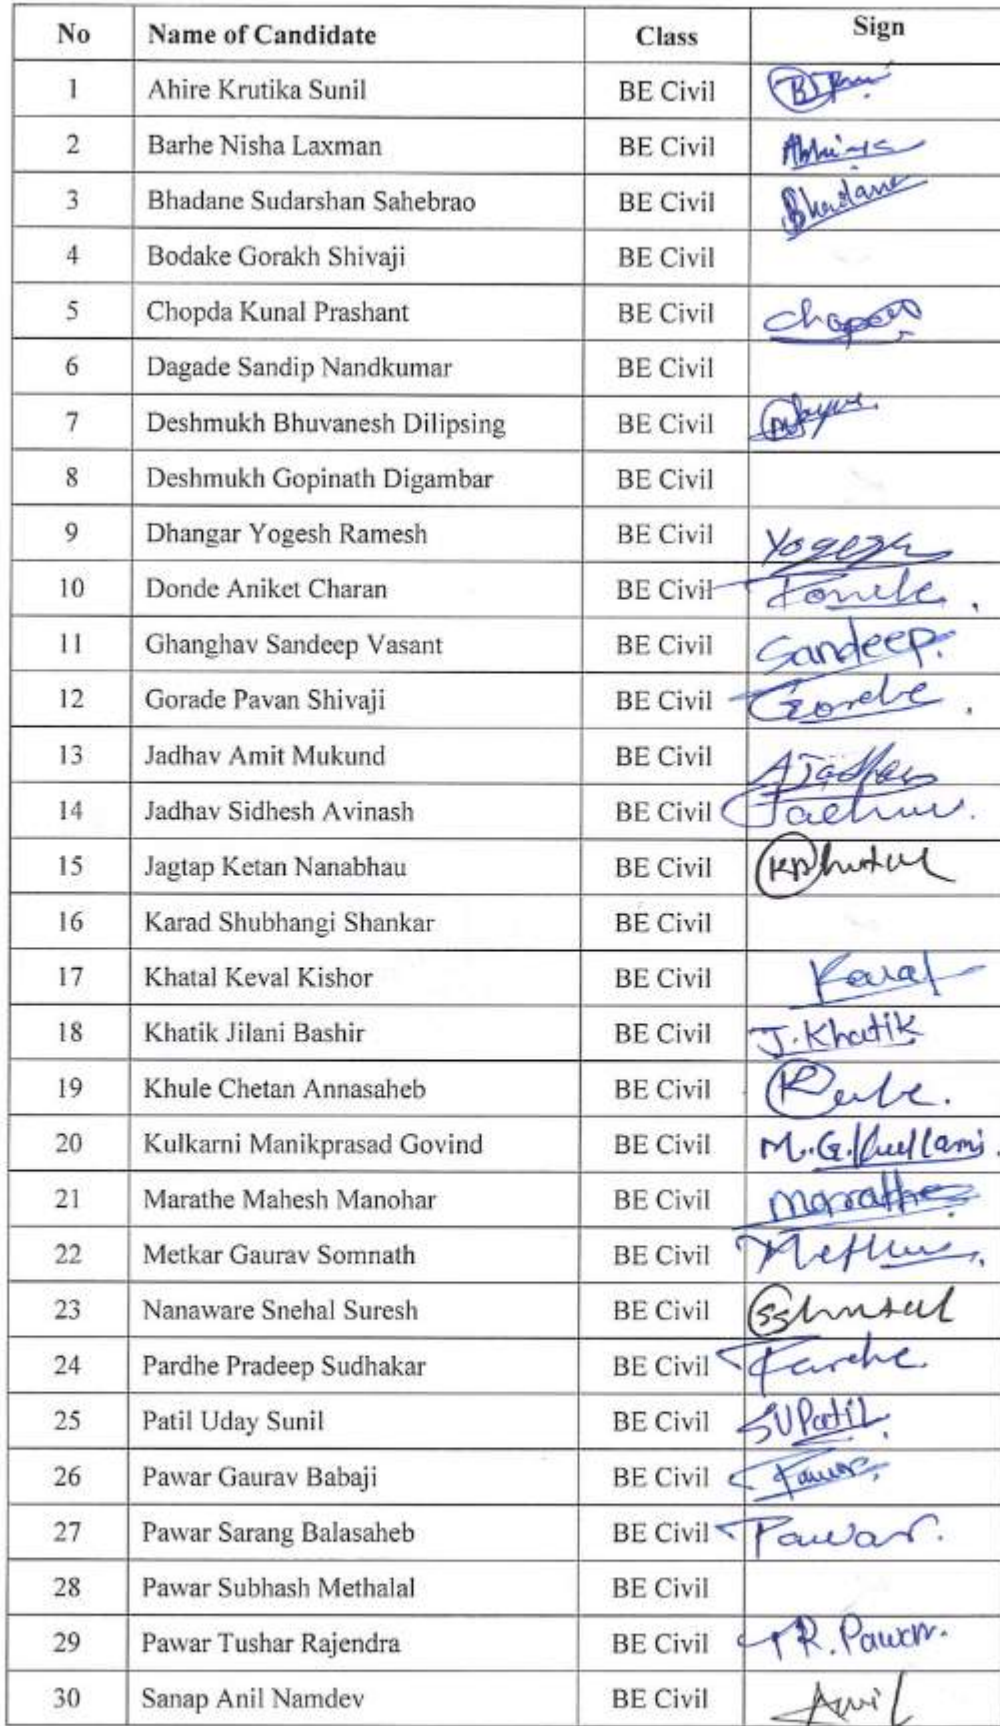 No Name of Candidate Class Sign
1 Ahire Krutika Sunil BE Civil
2 Barhe Nisha Laxman BE Civil
3 Bhadane Sudarshan Sahebrao BE Civil Bhadane
4 Bodake Gorakh Shivaji BE Civil
5 Chopda Kunal Prashant BE Civil
6 Dagade Sandip Nandkumar BE Civil
7 Deshmukh Bhuvanesh Dilipsing BE Civil
8 Deshmukh Gopinath Digambar BE Civil
9 Dhangar Yogesh Ramesh BE Civil Yogesh
10 Donde Aniket Charan BE Civil
11 Ghanghav Sandeep Vasant BE Civil Sandeep.
12 Gorade Pavan Shivaji BE Civil
13 Jadhav Amit Mukund BE Civil AJadhav
14 Jadhav Sidhesh Avinash BE Civil
15 Jagtap Ketan Nanabhau BE Civil
16 Karad Shubhangi Shankar BE Civil
17 Khatal Keval Kishor BE Civil
18 Khatik Jilani Bashir BE Civil J.Khatik
19 Khule Chetan Annasaheb BE Civil
20 Kulkarni Manikprasad Govind BE Civil M.G.Kulkarni.
21 Marathe Mahesh Manohar BE Civil Marathe
22 Metkar Gaurav Somnath BE Civil
23 Nanaware Snehal Suresh BE Civil
24 Pardhe Pradeep Sudhakar BE Civil
25 Patil Uday Sunil BE Civil SUPatil
26 Pawar Gaurav Babaji BE Civil
27 Pawar Sarang Balasaheb BE Civil Pawar.
28 Pawar Subhash Methalal BE Civil
29 Pawar Tushar Rajendra BE Civil TR.Pawar.
30 Sanap Anil Namdev BE Civil Anil